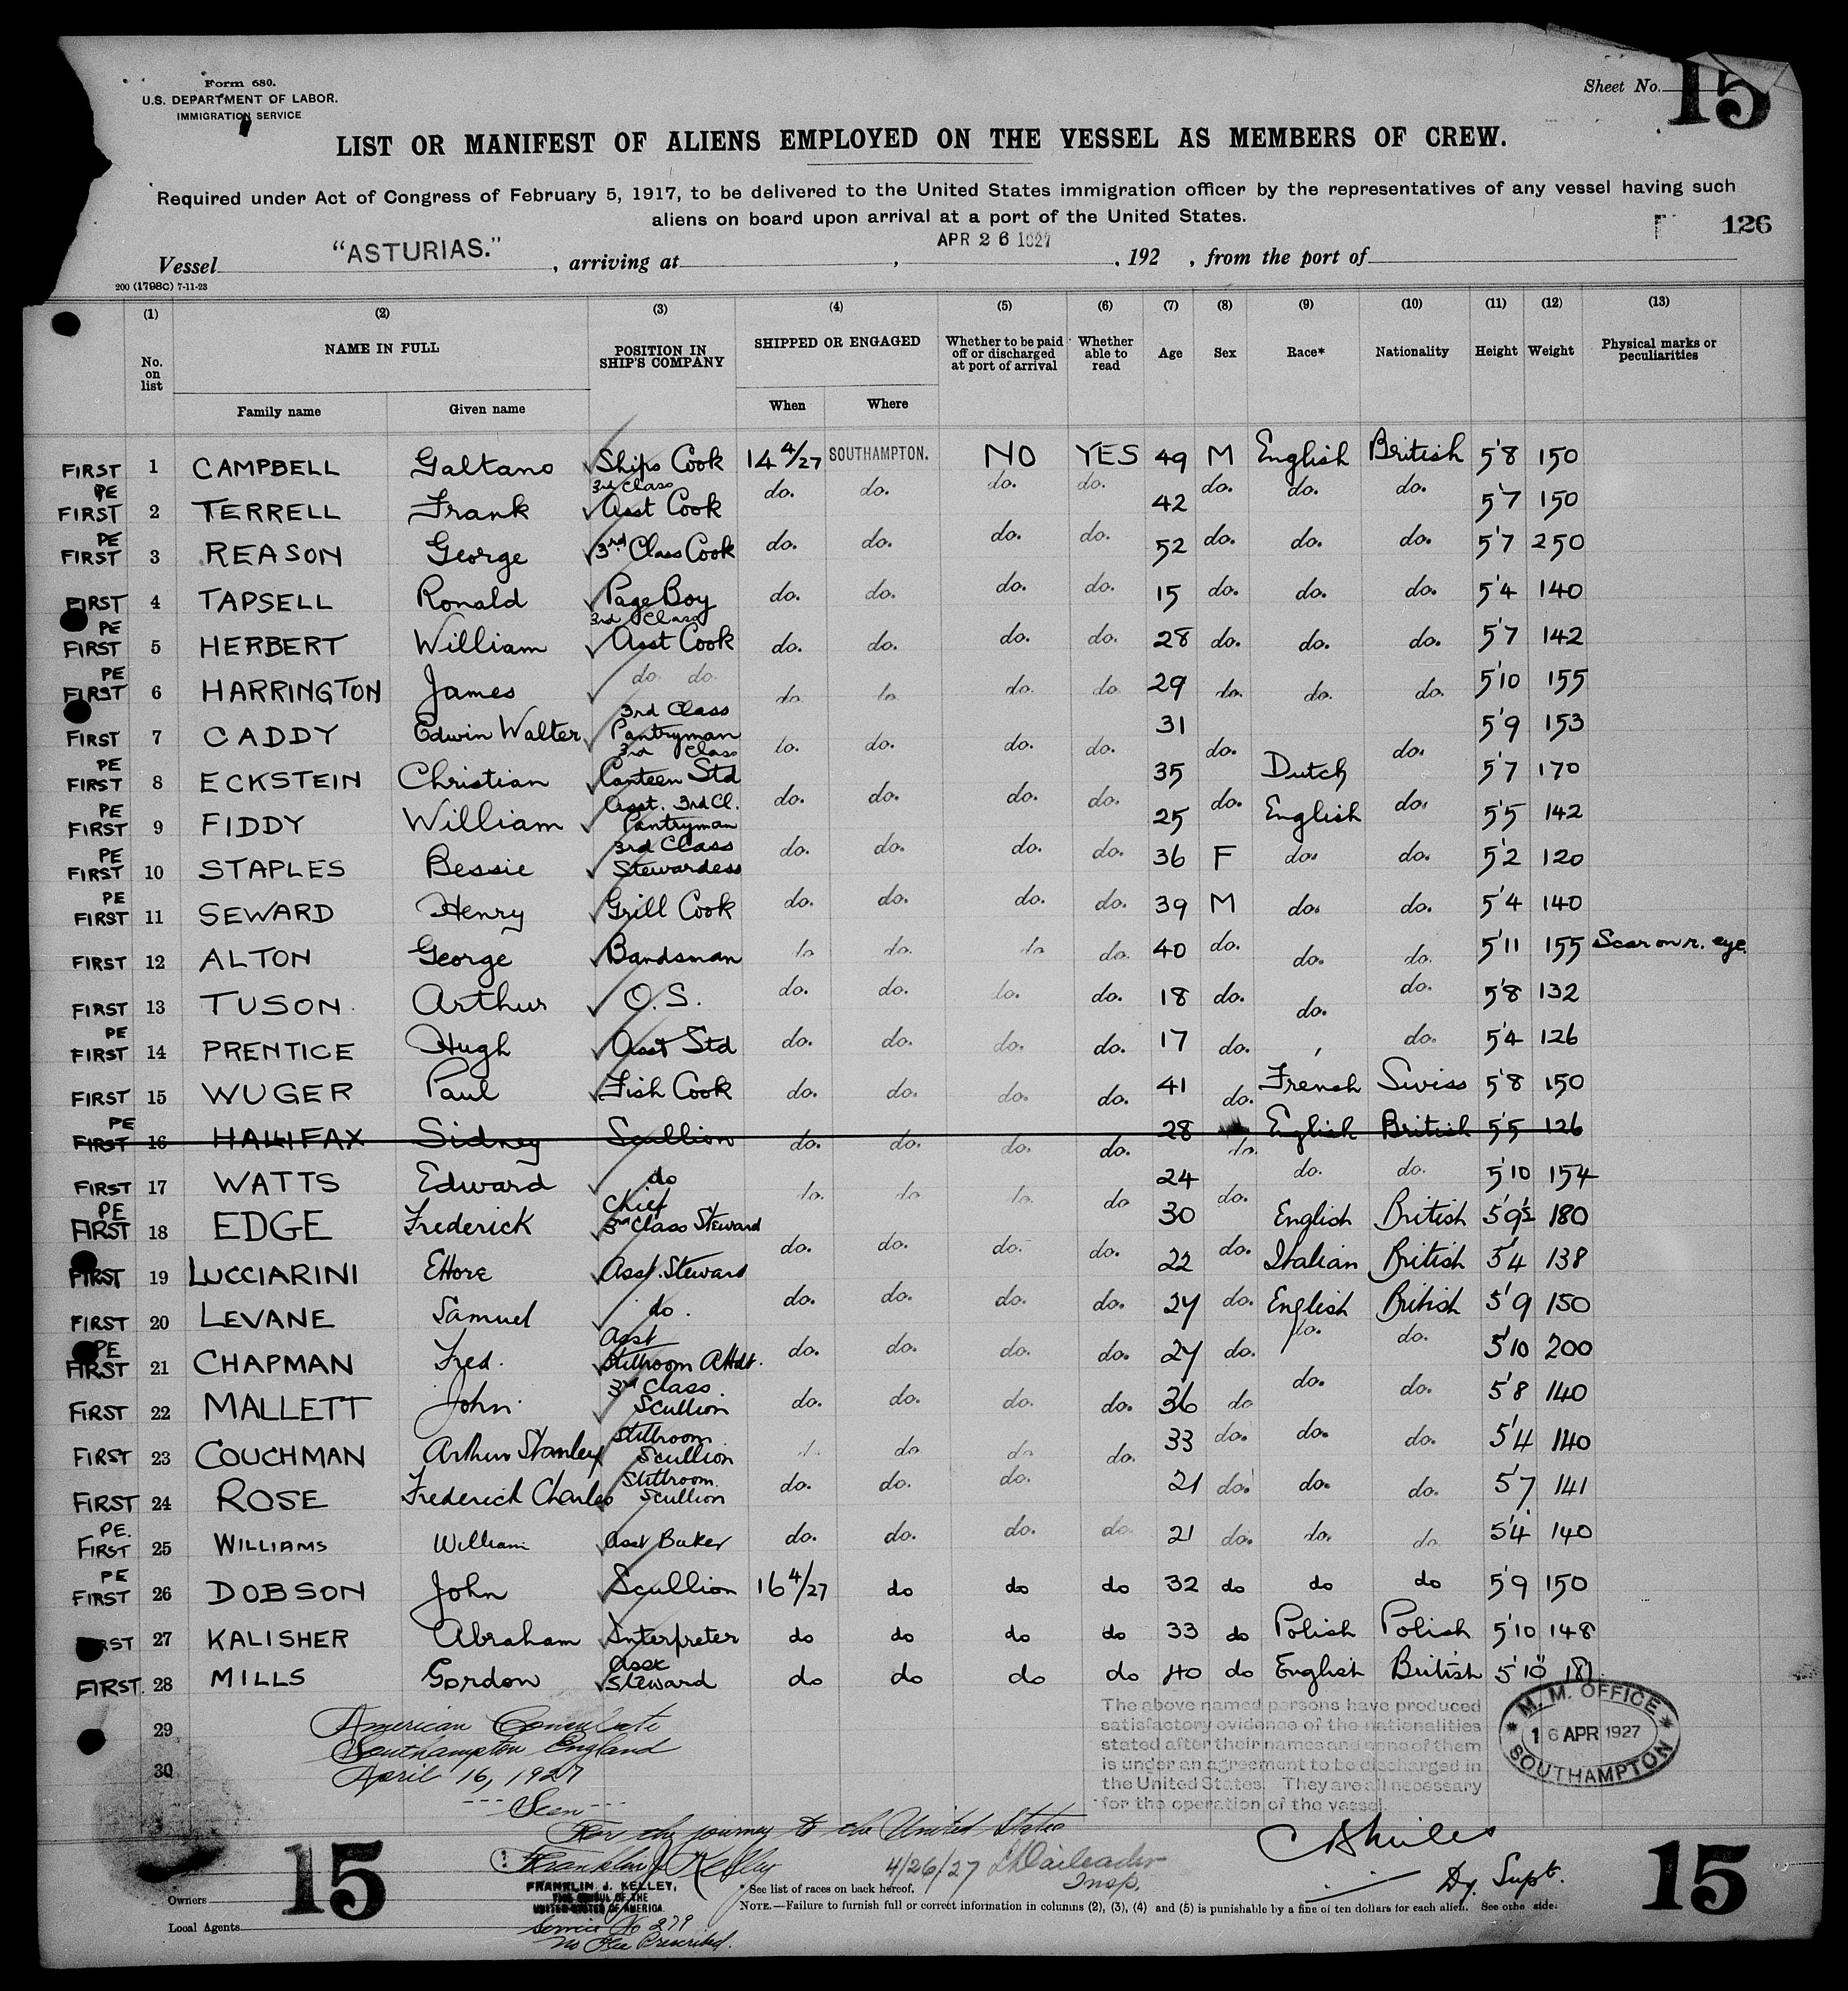 Form 680.
U.S. DEPARTMENT OF LABOR.
IMMIGRATION SERVICE
Sheet No. 15
LIST OR MANIFEST OF ALIENS EMPLOYED ON THE VESSEL AS MEMBERS OF CREW.
Required under Act of Congress of February 5, 1917, to be delivered to the United States immigration officer by the representatives of any vessel having such
aliens on board upon arrival at a port of the United States.
126
APR 26 1927
Vessel "ASTURIAS." , arriving at , , 192 , from the port of
200 (1798C) 7-11-23
(1) (2) (3) (4) (5) (6) (7) (8) (9) (10) (11) (12) (13)
No. on list NAME IN FULL POSITION IN SHIP'S COMPANY SHIPPED OR ENGAGED Whether to be paid off or discharged at port of arrival Whether able to read Age Sex Race* Nationality Height Weight Physical marks or peculiarities
Family name Given name When Where
FIRST 1 CAMPBELL Galtano Ships Cook 14 4/27 SOUTHAMPTON. NO YES 49 M English British 5'8 150
PE FIRST 2 TERRELL Frank 3rd Class Asst Cook do. do. do. do. 42 do. do. do. 5'7 150
PE FIRST 3 REASON George 3rd Class Cook do. do. do. do. 52 do. do. do. 5'7 250
FIRST 4 TAPSELL Ronald Page Boy do. do. do. do. 15 do. do. do. 5'4 140
PE FIRST 5 HERBERT William 3rd Class Asst Cook do. do. do. do. 28 do. do. do. 5'7 142
PE FIRST 6 HARRINGTON James do. do. do. do. do. do. 29 do. do. do. 5'10 155
FIRST 7 CADDY Edwin Walter 3rd Class Pantryman do. do. do. do. 31 do. do. 5'9 153
PE FIRST 8 ECKSTEIN Christian 3rd Class Canteen Std do. do. do. do. 35 do. Dutch do. 5'7 170
PE FIRST 9 FIDDY William Asst. 3rd Cl. Pantryman do. do. do. do. 25 English 5'5 142
PE FIRST 10 STAPLES Bessie 3rd Class Stewardess do. do. do. do. 36 F do. do. 5'2 120
PE FIRST 11 SEWARD Henry Grill Cook do. do. do. do. 39 M do. do. 5'4 140
FIRST 12 ALTON George Bandsman do. do. do. do. 40 do. do. do. 5'11 155 Scar on r. eye.
FIRST 13 TUSON. Arthur O.S. do. do. do. do. 18 do. do. do. 5'8 132
PE FIRST 14 PRENTICE Hugh Asst Std do. do. do. do. 17 do. do. 5'4 126
FIRST 15 WUGER Paul Fish Cook do. do. do. do. 41 do. French Swiss 5'8 150
PE FIRST 16 HALLIFAX Sidney Scullion do. do. do. do. 28 do. English British 5'5 126
FIRST 17 WATTS Edward do do. do do. do 24 do. do. do. 5'10 154
PE FIRST 18 EDGE Frederick Chief 3rd Class Steward do. do. do. do. 30 do. English British 5'9½ 180
FIRST 19 LUCCIARINI Ettore Asst. Steward do. do. do. do. 22 Italian British 5'4 138
FIRST 20 LEVANE Samuel do. do. do. do. do. 27 do. English British 5'9 150
PE FIRST 21 CHAPMAN Fred. Asst Stillroom Attdt. do. do. do. do. 27 do. do. do. 5'10 200
FIRST 22 MALLETT John. 3rd Class. Scullion do. do. do. do. 36 do do. do. 5'8 140
FIRST 23 COUCHMAN Arthur Stanley Stillroom Scullion do. do do. do. 33 do. do. do. 5'4 140
FIRST 24 ROSE Frederick Charles Stillroom. Scullion do. do. do. 21 do. do. do. 5'7 141
PE. FIRST 25 WILLIAMS William Asst Baker do. do. do. do. 21 do. do. do. 5'4 140
PE FIRST 26 DOBSON John Scullion 16 4/27 do do do 32 do do do 5'9 150
FIRST 27 KALISHER Abraham Interpreter do do do do 33 do Polish Polish 5'10 148
FIRST. 28 MILLS Gordon Asst Steward do do do do 40 do English British 5'10" 181
29
30
American Consulate
Southampton England
April 16, 1927
---Seen---
For the journey to the United States
Franklin J Kelley
FRANKLIN J. KELLEY,
CONSUL OF THE
UNITED STATES OF AMERICA.
Service No 279
No Fee Prescribed.
The above named persons have produced
satisfactory evidence of the nationalities
stated after their names and none of them
is under an agreement to be discharged in
the United States. They are all necessary
for the operation of the vessel.
M. M. OFFICE
16 APR 1927
SOUTHAMPTON
Dy. Supt.
4/26/27
Insp.
15 15
Owners
Local Agents
* See list of races on back hereof.
NOTE.—Failure to furnish full or correct information in columns (2), (3), (4) and (5) is punishable by a fine of ten dollars for each alien. See othe side.